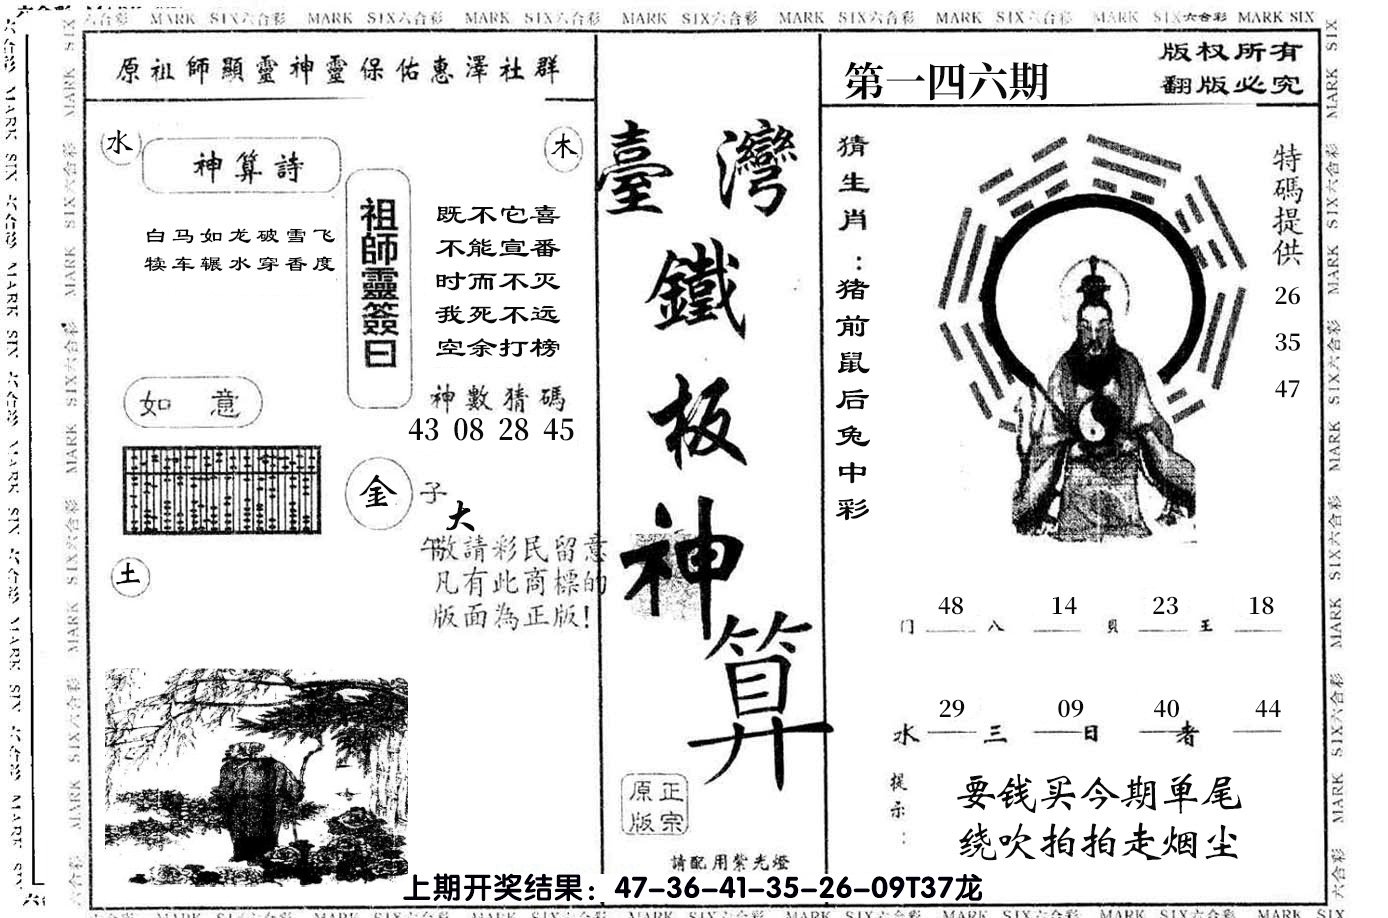 MARK SIX六合彩 MARK SIX六合彩 MARK SIX六合彩 MARK SIX六合彩 MARK SIX六合彩 MARK SIX六合彩 MARK SIX六合彩 MARK SIX
原祖師顯靈神靈保佑惠澤社群
水
神算詩
木
白马如龙破雪飞
犊车辗水穿香度
祖師靈簽曰
既不它喜
不能宣番
时而不灭
我死不远
空余打榜
神數猜碼
43 08 28 45
如 意
金
子
大
午
敬請彩民留意
凡有此商標的
版面為正版!
土
臺灣
鐵
板
神
算
正宗
原版
請配用紫光燈
第一四六期
版权所有
翻版必究
猜生肖:猪前鼠后兔中彩
特碼提供
26
35
47
48 14 23 18
门 八 貝 王
29 09 40 44
水 三 日 者
提示:
要钱买今期单尾
绕吹拍拍走烟尘
上期开奖结果：47-36-41-35-26-09T37龙